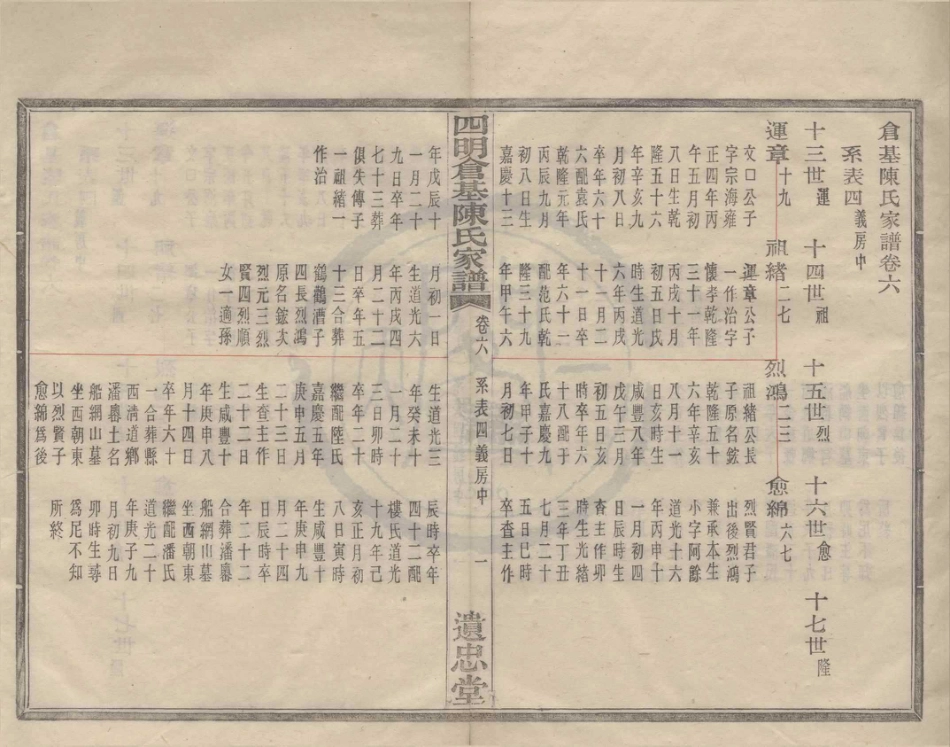 倉基陳氏家譜卷六
系表四義房中
十三世運
十四世祖
十五世烈
十六世愈
十七世隆
運章十九
文口公子
字宗海雍
正四年丙
午五月初
八日生乾
隆五十六
年辛亥九
月初八日
卒年六十
六配袁氏
乾隆元年
丙辰九月
初八日生
嘉慶十三
年戊辰十
一月二十
九日卒年
七十三葬
俱失傳子
一祖緒一
作治
祖緒二七
運章公子
一作治字
懷孝乾隆
三十一年
丙戌十月
初五日戌
時生道光
六年丙戌
十一月二
十一日卒
年六十一
配范氏乾
隆三十九
年甲午六
月初一日
生道光六
年丙戌四
月二十二
日卒年五
十三合葬
鶴鸛漕子
四長烈鴻
原名鋐次
烈元三烈
賢四烈順
女一適孫
烈鴻二三
祖緒公長
子原名鋐
乾隆五十
六年辛亥
八月十一
日亥時生
咸豐八年
戊午三月
初五日亥
時卒年六
十八配于
氏嘉慶九
年甲子十
月初七日
生道光三
年癸未十
一月二十
三日卯時
卒年二十
繼配陸氏
嘉慶五年
庚申五月
二十三日
生查主作
二十二日
生咸豐十
年庚申八
月十四日
卒年六十
一合葬縣
西清道鄉
潘土名
船網山墓
坐西朝東
以烈賢子
愈綿爲後
愈綿六六七
烈賢君子
出後烈鴻
兼承本生
小字阿餘
道光十六
年丙申十
一月初四
日辰時生
查主作卯
時生光緒
三年丁丑
七月二十
五日巳時
卒查主作
辰時卒年
四十二配
樓氏道光
十九年己
亥正月初
八日寅時
生咸豐十
年庚申九
月二十四
日辰時卒
年二十二
合葬潘
船網山墓
坐西朝東
繼配潘氏
道光二十
年庚子九
月初九日
卯時生
爲足不知
所終
四明倉基陳氏家譜
卷六
系表四義房中
一
遺忠堂